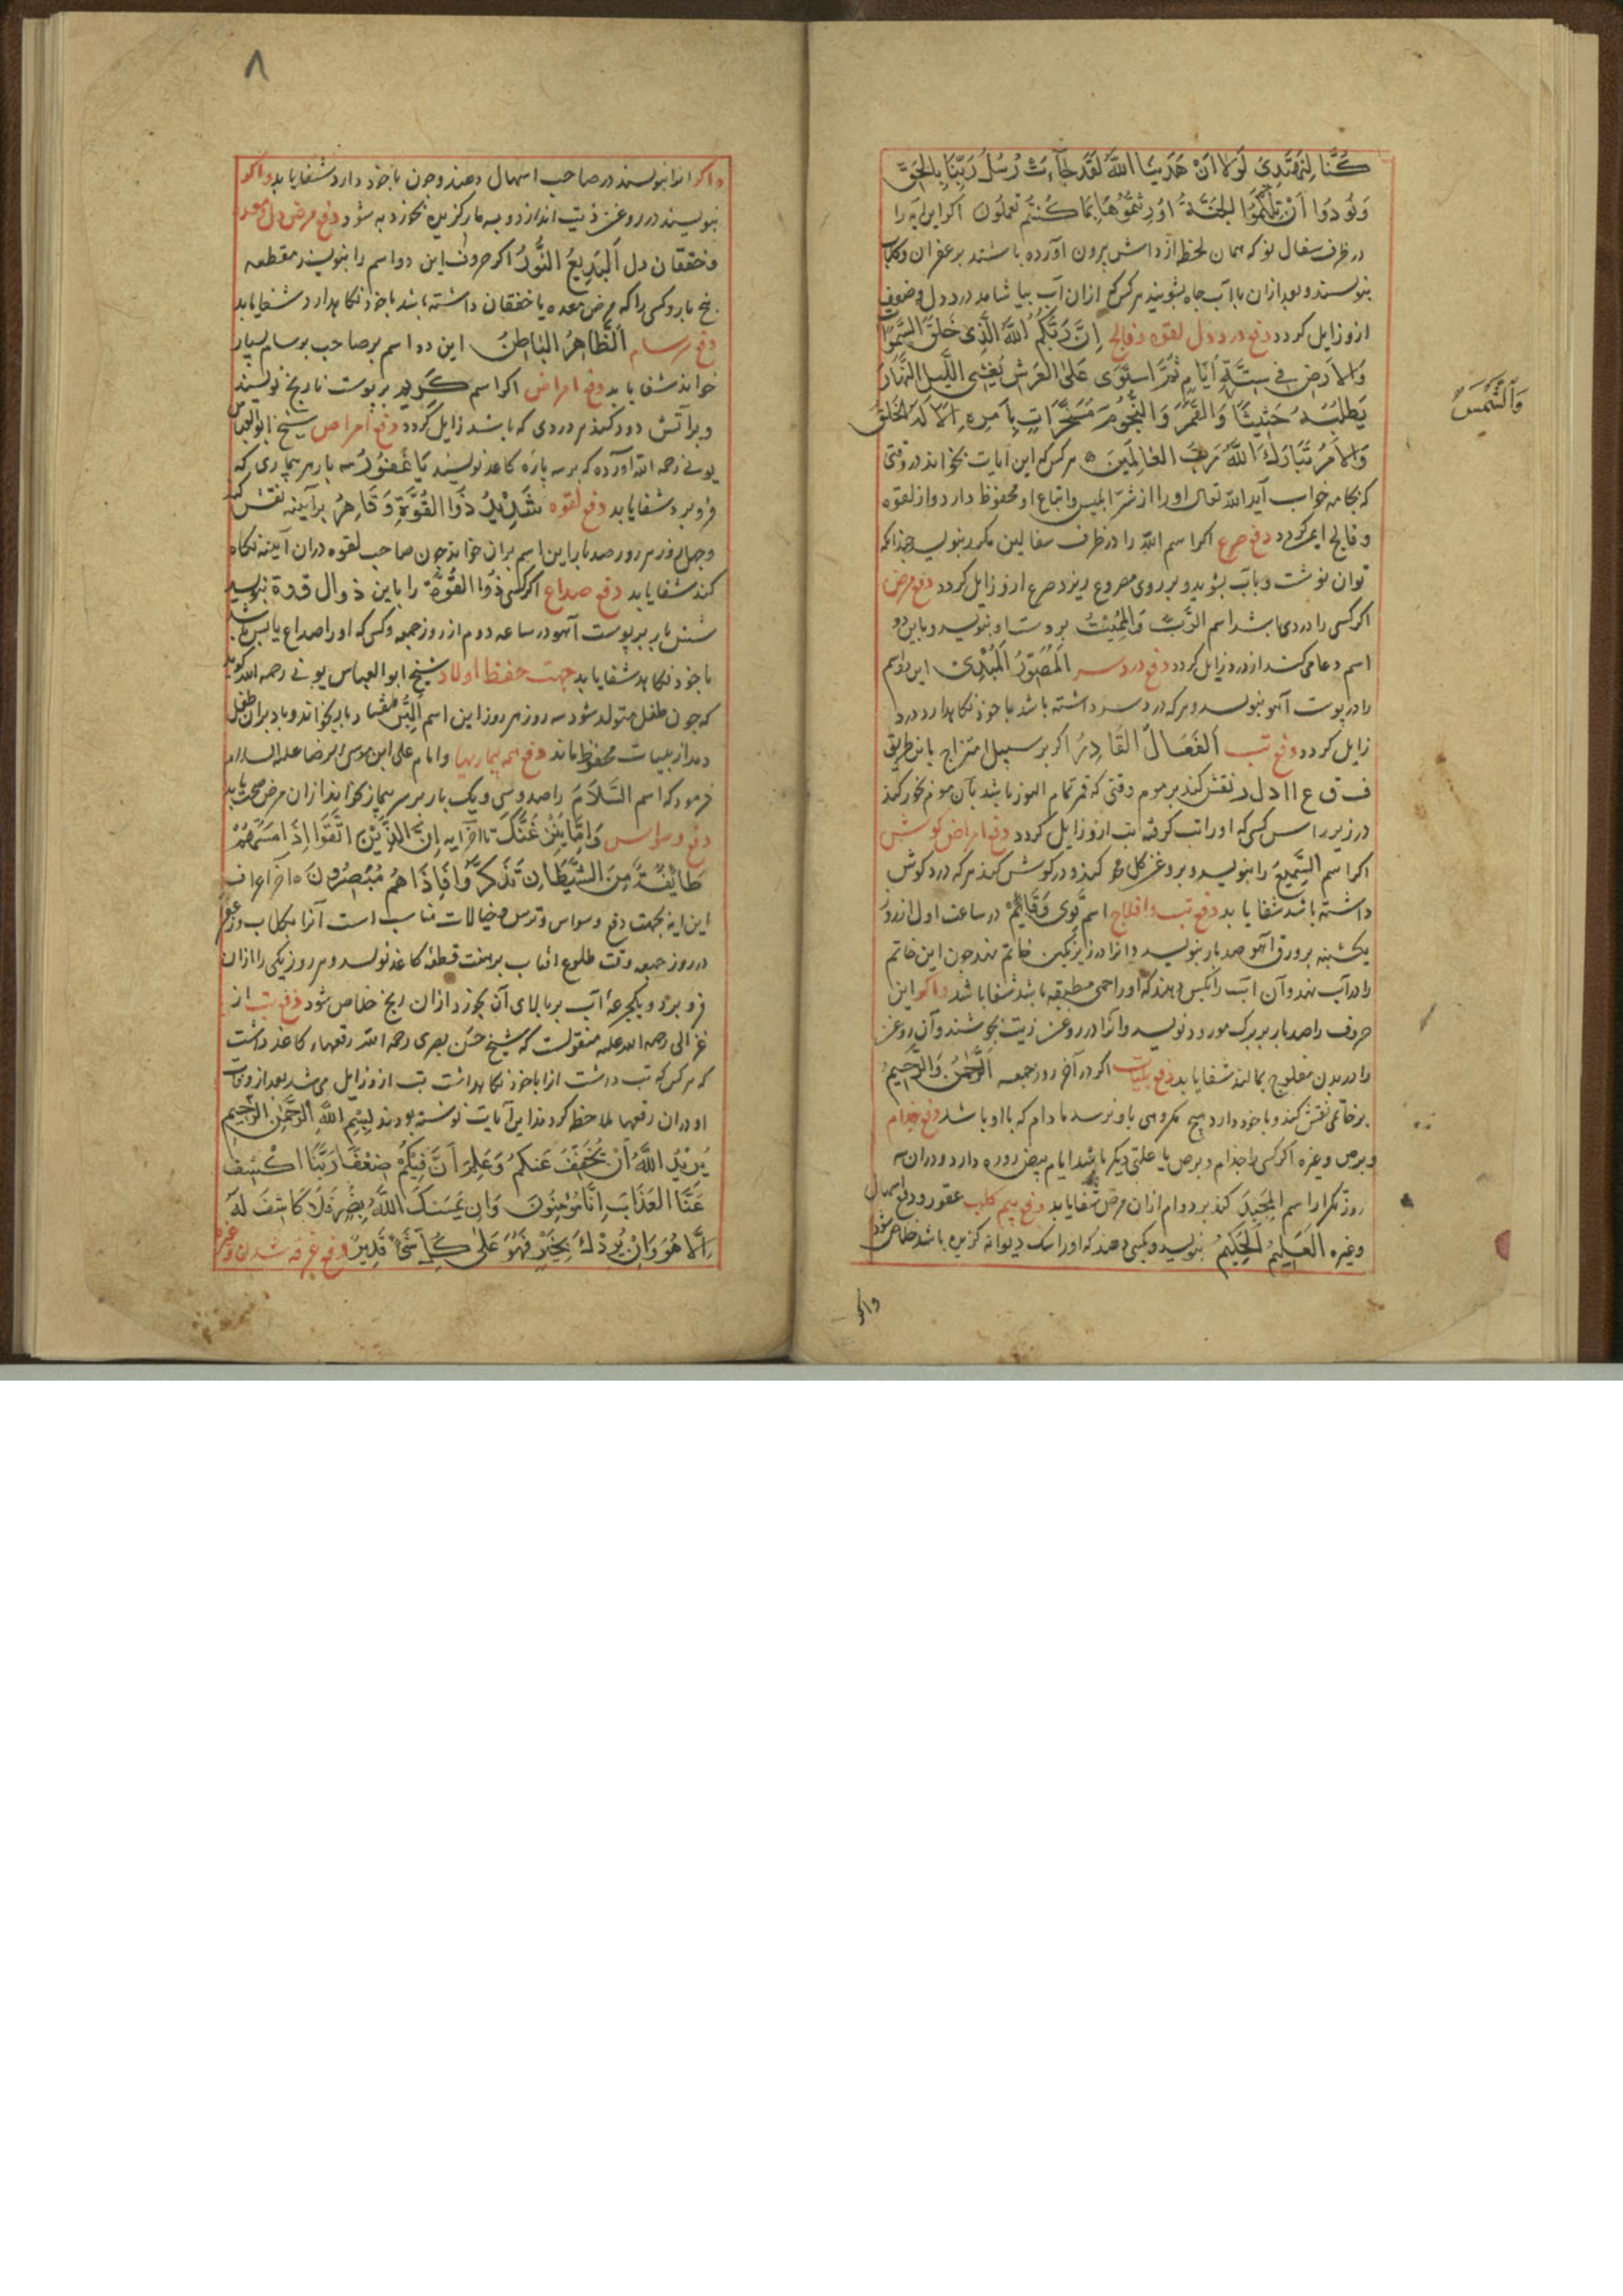 كُنَّا لِنَهْتَدِيَ لَوْلَا اَنْ هَدٰينَا اللّٰهُ لَقَدْ جَآءَتْ رُسُلُ رَبِّنَا بِالْحَقِّ
وَنُودُوا اَنْ تِلْكُمُ الْجَنَّةُ اُورِثْتُمُوهَا بِمَا كُنْتُمْ تَعْمَلُونَ اکر این آیه را
در ظرف سفال نو که همان لحظه از داش برون آورده باشند بزعفران و کلاب
بنویسند و بعد ازان باآب چاه بشویند هرکس که ازان آب بیاشامد درد دل و ضعف
ازو زایل کردد دفع درد دل لقوه و فالج اِنَّ رَبَّكُمُ اللّٰهُ الَّذِى خَلَقَ السَّمٰوَاتِ
وَالْاَرْضَ فِى سِتَّةِ اَيَّامٍ ثُمَّ اسْتَوَى عَلَى الْعَرْشِ يُغْشِى اللَّيْلَ النَّهَارَ
يَطْلُبُهُ حَثِيثًا وَالْقَمَرَ وَالنُّجُومَ مُسَخَّرَاتٍ بِاَمْرِهِ اَلَا لَهُ الْخَلْقُ
وَالشَّمْسَ
وَالْاَمْرُ تَبَارَكَ اللّٰهُ رَبُّ الْعَالَمِينَ هرکس که این آیات بخواند در وقتی
که بجامه خواب آید الله تعالی او را از شر ابلیس و اتباع او محفوظ دارد و از لقوه
و فالج ایمن کردد دفع صرع اکر اسم الله را در ظرف سفالین مکرر بنویسد چندانکه
توان نوشت و بآب بشوید و بر روی مصروع ریزد صرع ازو زایل کردد دفع مرض
اکر کسی را دردی باشد اسم الرَّبُّ وَالْمُمِيتُ بروست او بنویسد و باین دو
اسم دعا می کند از درد زایل کردد دفع درد سر اَلْمُصَوِّرُ الْمُبْدِی این دو اسم
را در پوست آهو بنویسد و هرکه درد سر داشته باشد با خود نکاهدارد درد
زایل کردد دفع تب اَلْفَعَّالُ الْقَادِرُ اکر بر سبیل امتزاج باین طریق
ف ق ع ا ا د ل ر نقش کند بر موم وقتی که قمر تمام النور باشد بآن موم بخور کند
در زیر راس کسی که او را تب کرفته تب ازو زایل کردد دفع امراض کوش
اکر اسم السَّمِيعُ را بنویسد و بروغن کل محو کند و در کوش کند هرکه درد کوش
داشته باشد شفا یابد دفع تب و افلاج اسم قَوِی وَقَائِمْ در ساعت اول از روز
یکشنبه بر ورق آهو صد بار بنویسد و آنرا در زیر نکین خاتم نهد چون این خاتم
را در آب نهد و آن آب را بکسی دهند که او را حمی مطبقه باشد شفا باشد و اکر این
حروف را صد بار بر برک مورد نویسد و آنرا در روغن زیت بجوشند و آن روغن
را در بدن مفلوج بمالند شفا یابد دفع بلیات اکر در آخر روز جمعه اَلرَّحْمٰنُ وَالرَّحِيمُ
بر خاتمی نقش کند و با خود دارد هیچ مکروهی باو نرسد مادام که با او باشد دفع جذام
و برص و غیره اکر کسی را جذام و برص یا علتی دیکر باشد ایام بیض روزه دارد و دران سه
روز تکرار اسم اَلْمَجِيدُ کند بر دوام ازان مرض شفا یابد دفع بیم کلب عقور و دفع اسهال
و غیره اَلْعَلِيمُ اَلْحَكِيمُ بنویسد و بکسی دهند که او را سک دیوانه کزیده باشد خلاص شود
واکر
۸
و اکر آنرا بنویسند در صاحب اسهال دهند و چون با خود دارد شفا یابد و اکر
بنویسند در روغن زیت اندازد و به مار کزیده بخورد به شود دفع مرض دل و معده
و خفقان دل اَلْبَدِيعُ النُّورُ اکر حروف این دو اسم را بنویسند مقطعه
پنج بار و کسی را که مرض معده یا خفقان داشته باشد با خود نکاهدارد شفا یابد
دفع برسام اَلظَّاهِرُ الْبَاطِنُ این دو اسم بر صاحب برسام بسیار
خوانند شفا یابد دفع امراض اکر اسم کَرِیم بر پوست نارنج نویسند
و بر آتش دود کند هر دردی که باشد زایل کردد دفع امراض شیخ ابوالعباس
بونی رحمه الله آورده که بر سه پاره کاغذ نویسند يَا غَفُورُ سه بار هر بیماری که
فرو برد شفا یابد دفع لقوه شَدِيدُ ذُوا الْقُوَّةِ وَقَاهِرُ بر آیینه نقش کند
و چهل روز هر روز صد بار این اسم بران خواند چون صاحب لقوه دران آیینه نکاه
کند شفا یابد دفع صداع اکر کسی ذُوا الْقُوَّةِ را باین ذ و ا ل ق و ة بنویسد
شش بار بر پوست آهو در ساعه دوم از روز جمعه و کسی که او را صداع باشد
با خود نکاهدارد شفا یابد جهت حفظ اولاد شیخ ابو العباس بونی رحمه الله کوید
که چون طفل متولد شود سه روز هر روز این اسم اَلْبَرُّ هفتاد بار بخواند و باد بران طفل
دمد از بلیات محفوظ ماند دفع همه بیماریها و امام علی ابن موسی الرضا علیه السلام
فرمود که اسم السَّلَامُ را صد و سی و یک بار بر سر بیمار بخوانند ازان مرض صحت یابد
دفع وسواس وَاِمَّا يَنْزَغَنَّكَ تا آخر آیه اِنَّ الَّذِيْنَ اتَّقَوْا اِذَا مَسَّهُمْ
طَايِفٌ مِنَ الشَّيْطَانِ تَذَكَّرُوا فَاِذَا هُمْ مُبْصِرُونَ تا آخر اعراف
این آیه بجهت دفع وسواس و ترس و خیالات مناسب است آنرا بکلاب و زعفران
در روز جمعه وقت طلوع افتاب بر هفت قطعه کاغذ نویسد و هر روز یکی را ازان
فرو برد و یکجرعه آب بر بالای آن بخورد ازان رنج خلاص شود دفع تب از
غزالی رحمه الله علیه منقولست که شیخ حسن بصری رحمه الله رقعهاء کاغذ داشت
که هرکس که تب داشت انرا با خود نکاهداشت تب ازو زایل می شد بعد از وفات
او دران رقعها ملاحظه کردند این آیات نوشته بودند بِسْمِ اللّٰهِ الرَّحْمٰنِ الرَّحِيمِ
يُرِيْدُ اللّٰهُ اَنْ يُخَفِّفَ عَنْكُمْ وَعَلِمَ اَنَّ فِيْكُمْ ضَعْفًا رَبَّنَا اكْشِفْ
عَنَّا الْعَذَابَ اِنَّا مُؤْمِنُونَ وَاِنْ يَمْسَسْكَ اللّٰهُ بِضُرٍّ فَلَا كَاشِفَ لَهُ
اِلَّا هُوَ وَاِنْ يُرِدْكَ بِخَيْرٍ فَهُوَ عَلٰى كُلِّ شَىْءٍ قَدِيرٌ دفع غرقه شدن و غیره